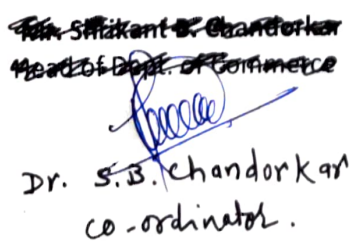 Mr. Shrikant B. Chandorkar
Head of Dept. of Commerce
Dr. S.B. Chandorkar
co-ordinator.